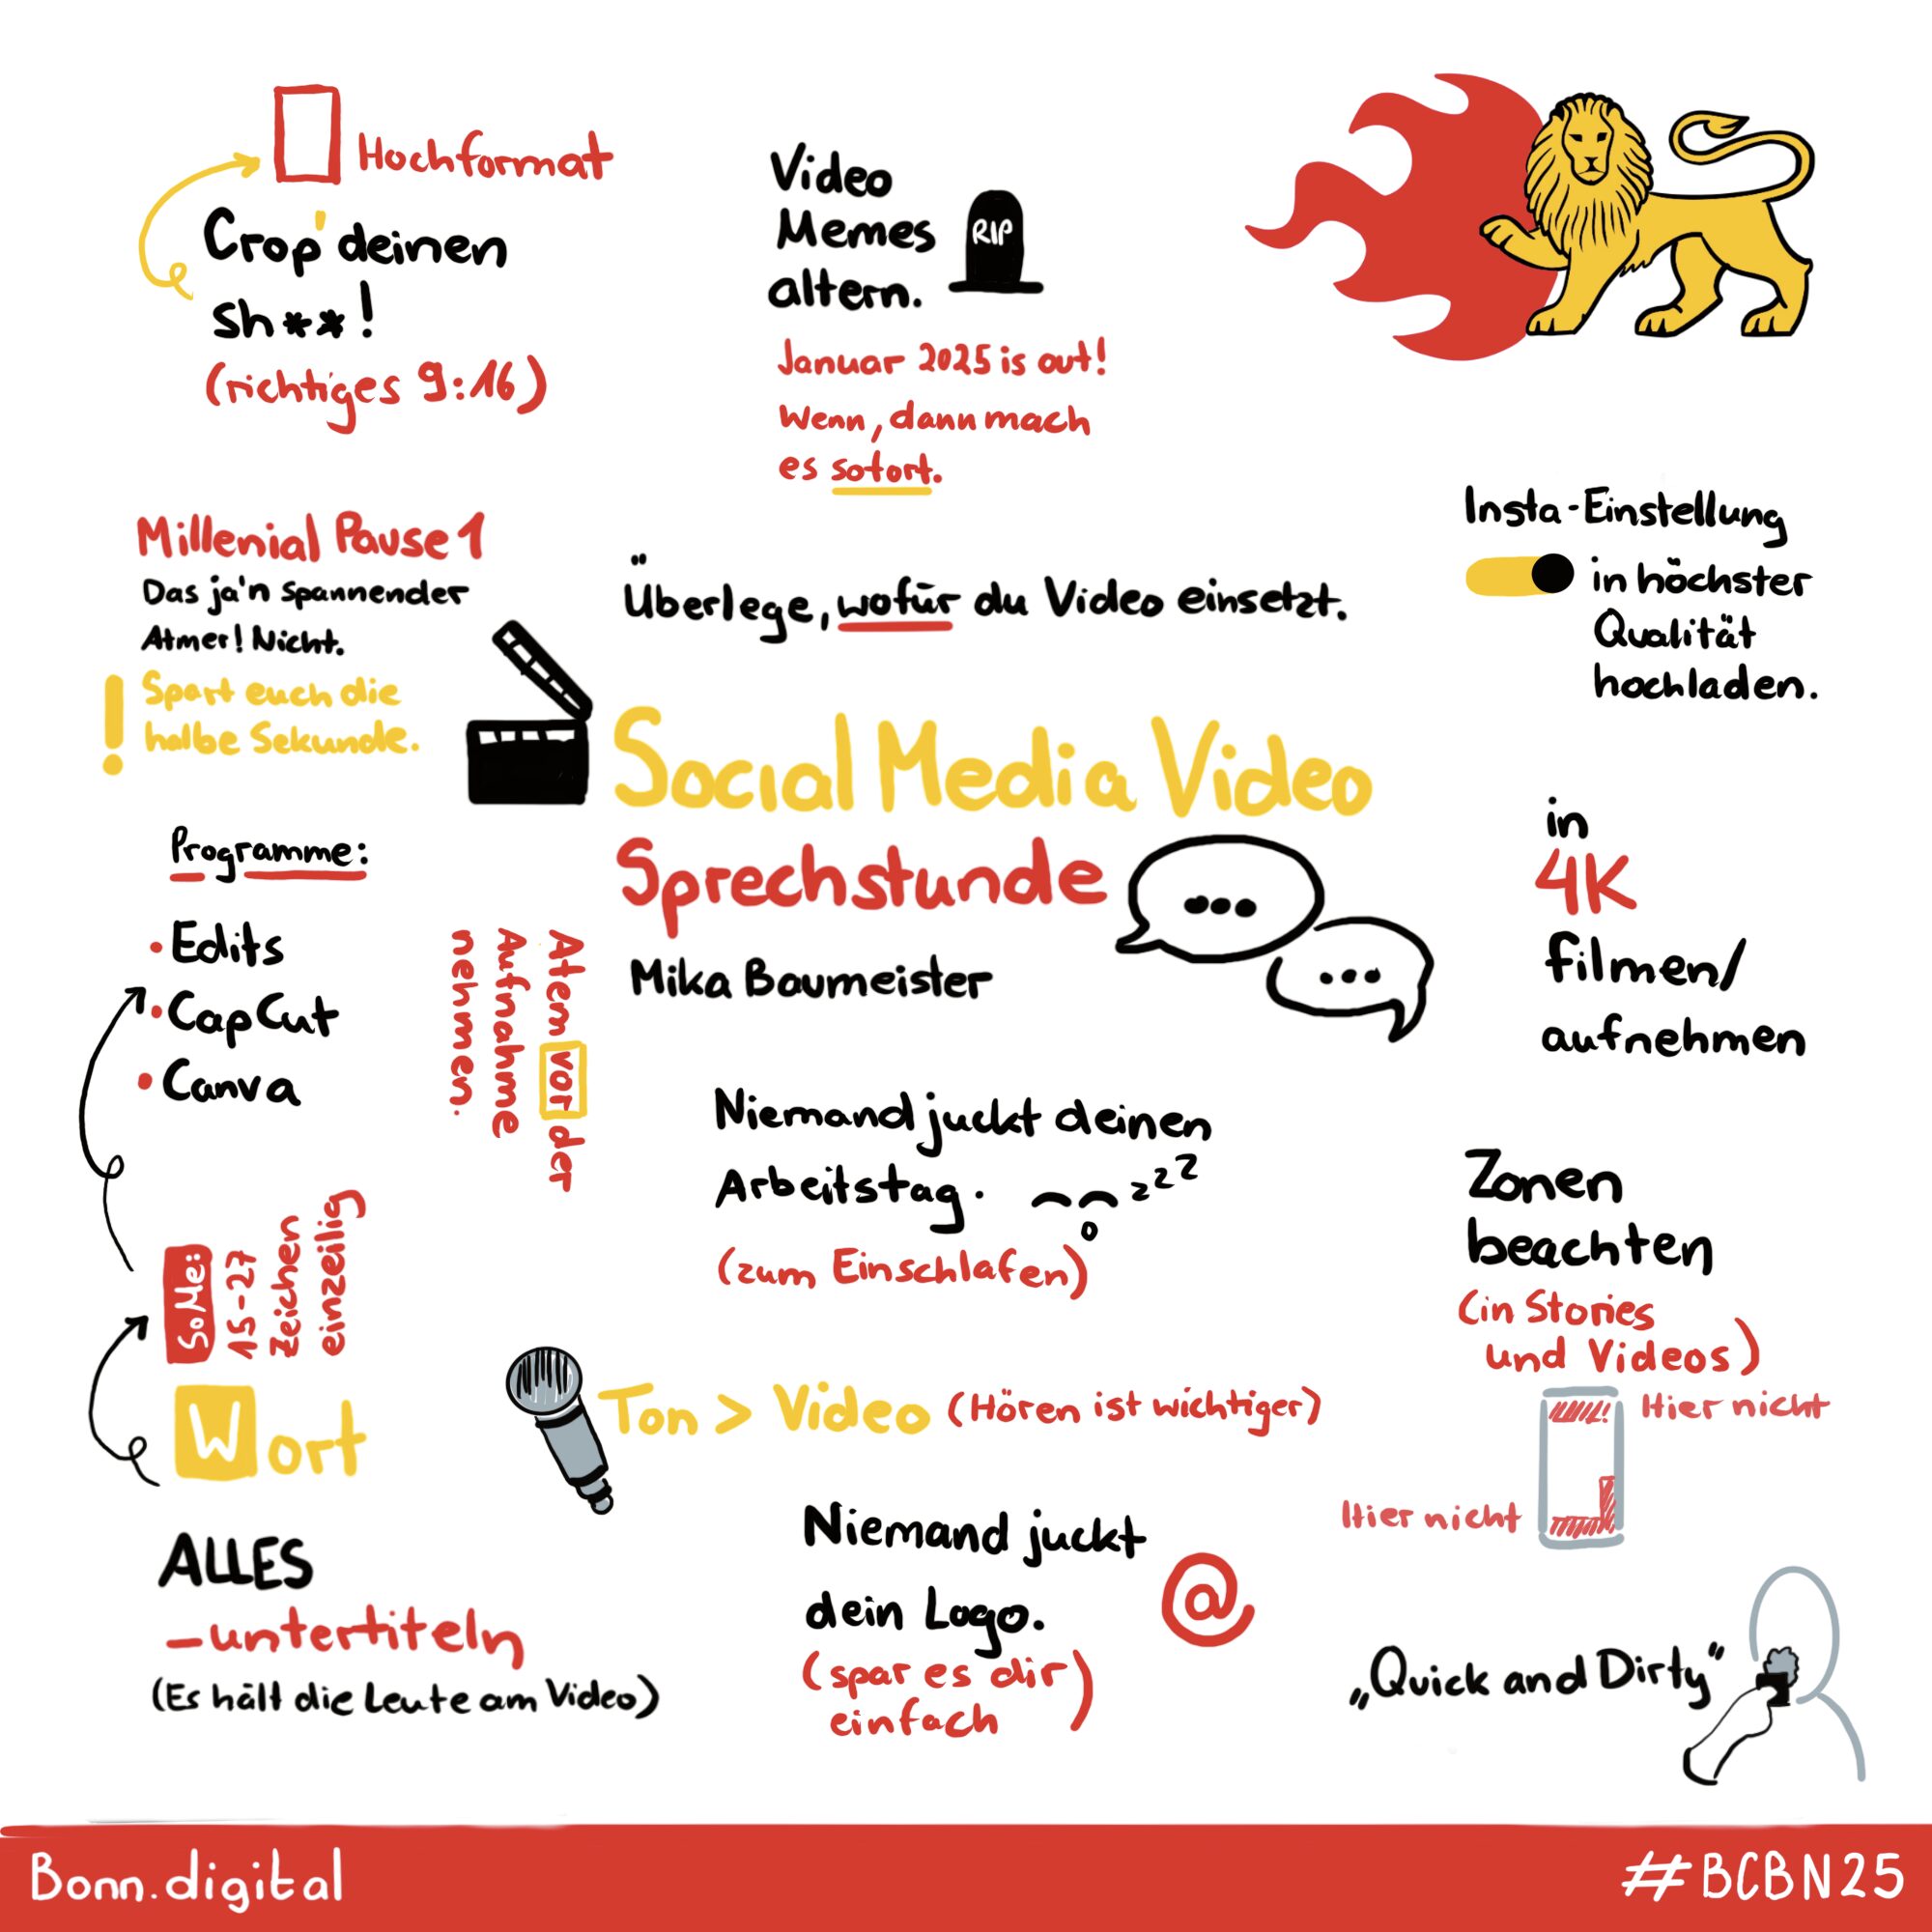 Hochformat
Crop' deinen
sh**!
(richtiges 9:16)
Video
Memes
altern.
RIP
Januar 2025 is out!
Wenn, dann mach
es sofort.
Millenial Pause 1
Das ja'n spannender
Atmer! Nicht.
! Spart euch die
halbe Sekunde.
Überlege, wofür du Video einsetzt.
Insta-Einstellung
in höchster
Qualität
hochladen.
Social Media Video
Sprechstunde
Mika Baumeister
...
...
Programme:
• Edits
• CapCut
• Canva
Atem vor der
Aufnahme
nehmen.
in
4K
filmen/
aufnehmen
Niemand juckt deinen
Arbeitstag.
zzz
(zum Einschlafen)
Zonen
beachten
(in Stories
und Videos)
Hier nicht
Hier nicht
SoMe:
15-27
Zeichen
einzeilig
Wort
Ton > Video (Hören ist wichtiger)
ALLES
-untertiteln
(Es hält die Leute am Video)
Niemand juckt
dein Logo.
@
(spar es dir
einfach)
„Quick and Dirty"
Bonn.digital
#BCBN25